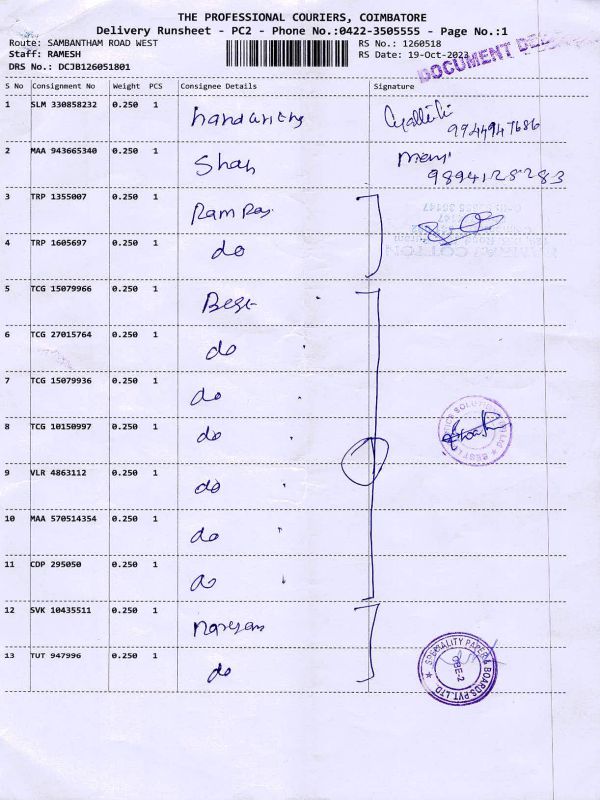 THE PROFESSIONAL COURIERS, COIMBATORE
Delivery Runsheet - PC2 - Phone No.:0422-3505555 - Page No.:1
Route: SAMBANTHAM ROAD WEST RS No.: 1260518
Staff: RAMESH RS Date: 19-Oct-2023
DRS No.: DCJB126051801 DOCUMENT
S No Consignment No Weight PCS Consignee Details Signature
1 SLM 330858232 0.250 1
9944947686
2 MAA 943665340 0.250 1 Shah
9894128283
3 TRP 1355007 0.250 1
4 TRP 1605697 0.250 1 do
5 TCG 15079966 0.250 1 Best
6 TCG 27015764 0.250 1 do
7 TCG 15079936 0.250 1 do
8 TCG 10150997 0.250 1 do
9 VLR 4863112 0.250 1 do
10 MAA 570514354 0.250 1 do
11 CDP 295050 0.250 1 do
12 SVK 10435511 0.250 1
13 TUT 947996 0.250 1 do
SPECIALITY PAPER & BOARDS PVT. LTD
CBE-2